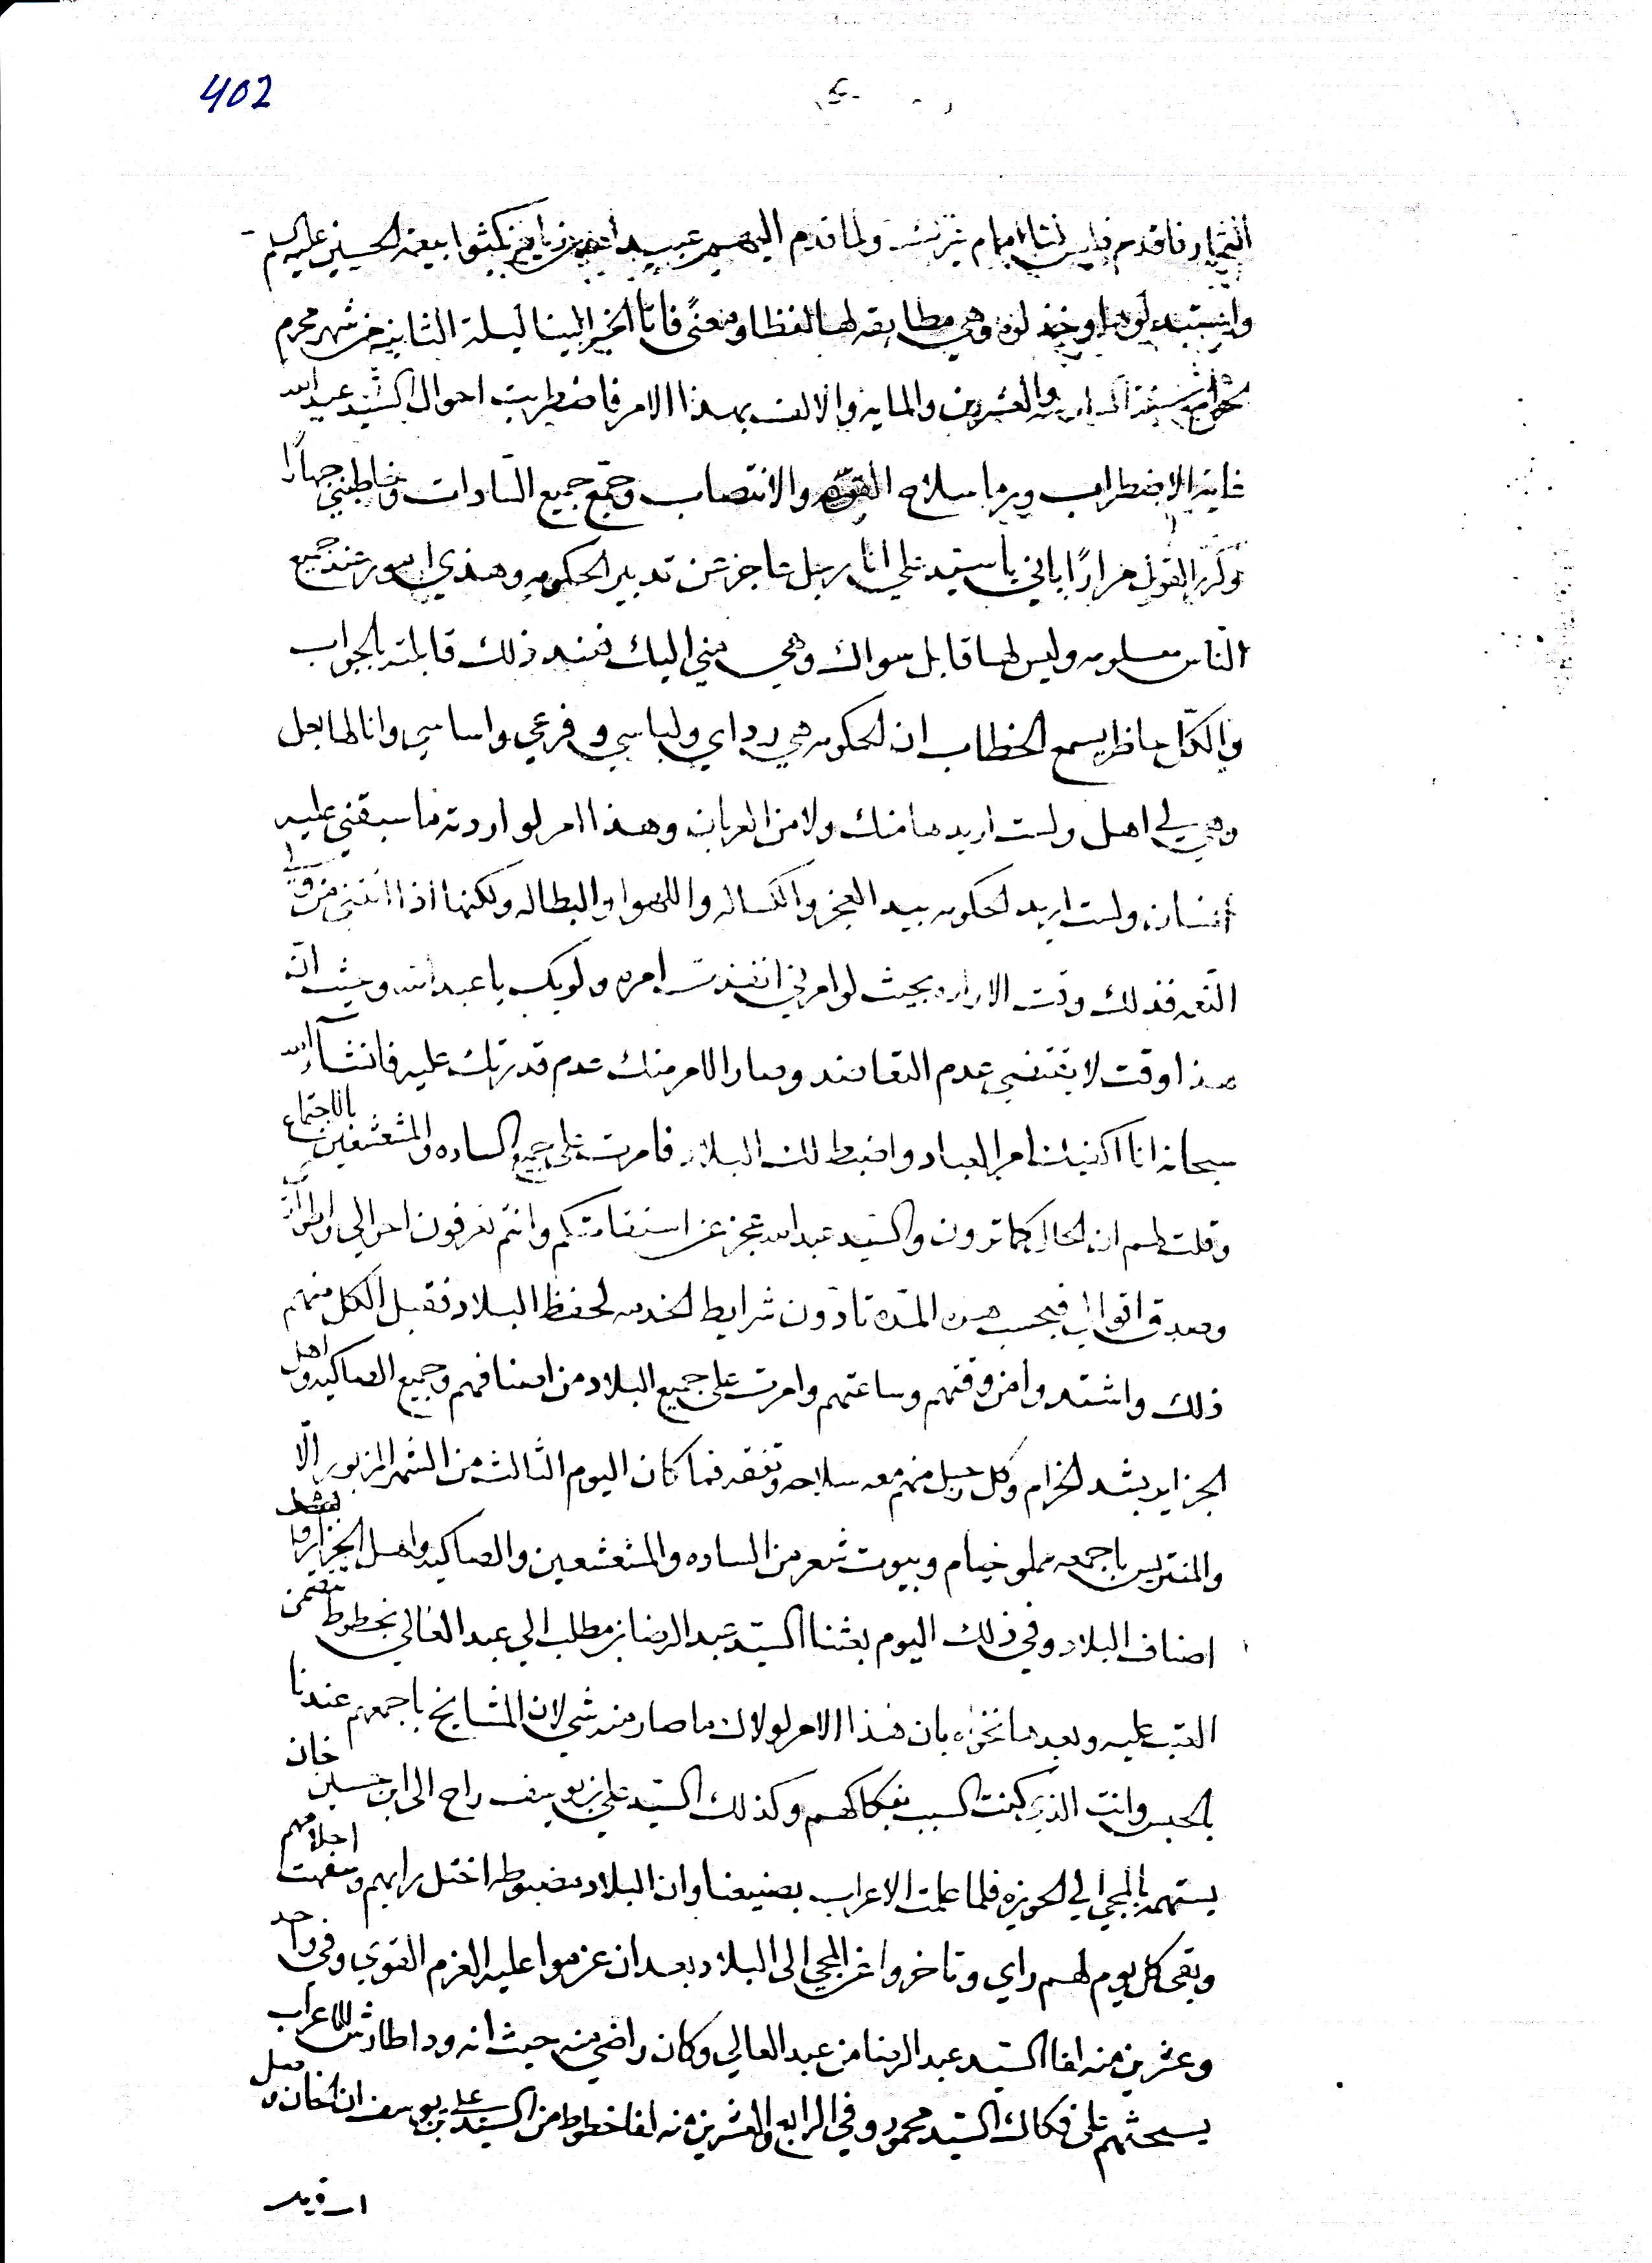 402
فاقدم فليس لنا امام ولما قدم اليهم عبيد نكثوا بيعة الحسين عليه السلم
وهي مطابقه لها لفظا ومعنًى فاتا الخبر الينا ليلة الثانيه من شهر محرم
سنة والعشرين والمايه والالف بهذا الامر فاضطربت احوال السيد عبد الله
غاية الاضطراب ورما سلاح والانتصاب وجمّع جميع السّادات وخاطبني جهارًا
وكرّر القول مرارًا باني يا سيد علي انا رجل عاجز عن تدبير الحكومه وهذي امور عند جميع
النّاس معلومه وليس لها قابل سواك وهي مني اليك فعند ذلك قابلته بالجواب
والكلّ حاظر يسمع الخطاب ان الحكومه هي رداي ولباسي وفرعي واساسي وانا لها بعل
وهي لي اهل ولست اريدها منك ولا من العربان وهذا امر لو اردته ما سبقني عليه
انسان ولست اريد الحكومه بيد العجز والكساله واللهوا والبطاله ولكنها اذا اتتني من ولي
النّعمه فذلك وقت الاراده بحيث لو امرني انفذت امره ولو بك يا عبد الله وحيث انّ
هذا وقت لا يقتضي عدم التعاضد وصار الامر منك عدم قدرتك عليه فانشآء الله
سبحانه انا اكفيك امر العباد واضبط لك البلاد فامرت على جميع الساده والمشعشعين بالاجتماع
وقلت لهم ان الحال كما ترون والسيد عبد الله عجز عن استقامتكم وانتم تعرفون احوالي واطواري
وصدق اقوالي فبحسب هذه المدّه تادّون شرايط الخدمه لحفظ البلاد فقبل الكل منهم
ذلك واشتدوا من وقتهم وساعتهم وامرت على جميع البلاد من اصنافهم وجميع الصاكيه واهل
الجزاير بشد الحزام وكل رجل منهم معه سلاحه وتفقه فما كان اليوم الثالث من الشهر المزبور الّا
والمنتريس باجمعه مملو خيام وبيوت شعر من الساده والمشعشعين والصاكيه واهل الجزاير وباقي
اصناف البلاد وفي ذلك اليوم بعثنا السيّد عبد الرضا بن مطلب الى عبد العالي بخطوط تتضمن
العتب عليه وبعدها نخوه بان هذا الامر لولاك ما صار منه شي لان المشايخ باجمعهم عندنا
بالحبس وانت الذي كنت السبب بفكاكهم وكذلك السيّد علي بن يوسف راح الى ابن حسين خان
يستهمه بالمجي الى الحويزه فلما علمت الاعراب بصنيعنا وان البلاد مضبوطه اختل رايهم وسفهت احلامهم
وبقى كل يوم لهم راي وتاخروا عن المجي الى البلاد بعد ان عزموا عليه العزم القوي وفي واحد
وعشرين منه لفا السيد عبد الرضا من عبد العالي وكان راضي منه حيث انه ودا طارش للاعراب
يستحثهم على فكاك السيّد محمود وفي الرابع والعشرين منه لفا خطوط من السيد علي بن يوسف ان الخان وصل